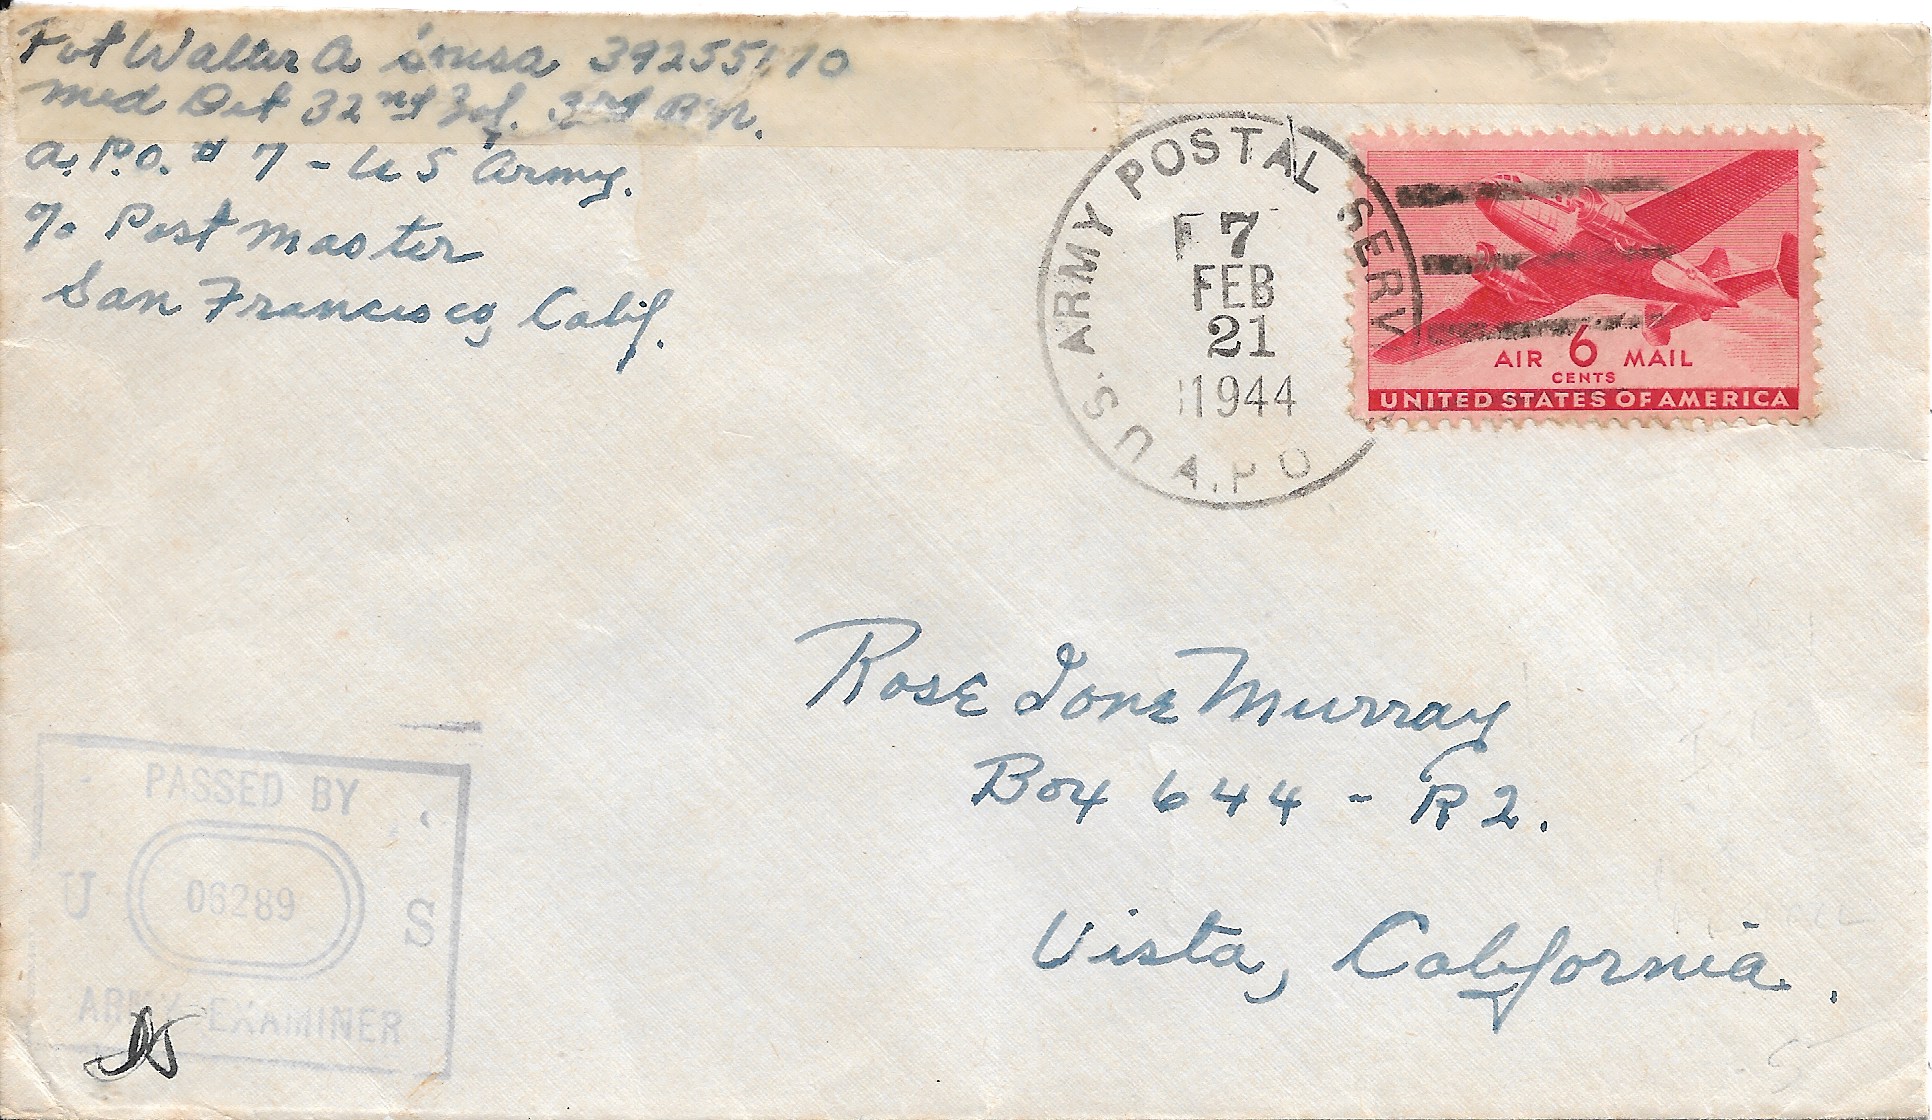 Pvt Walter A Sousa 39255170
Med Det 32nd Inf. 3rd B'n.
A.P.O. # 7 - US Army.
% Post Master
San Francisco, Calif.
ARMY POSTAL SERV
7
FEB
21
1944
U.S. A.P.O
AIR 6 MAIL
CENTS
UNITED STATES OF AMERICA
Rose Ione Murray
Box 644 - R2.
Vista, California.
PASSED BY
U 06289 S
ARMY EXAMINER